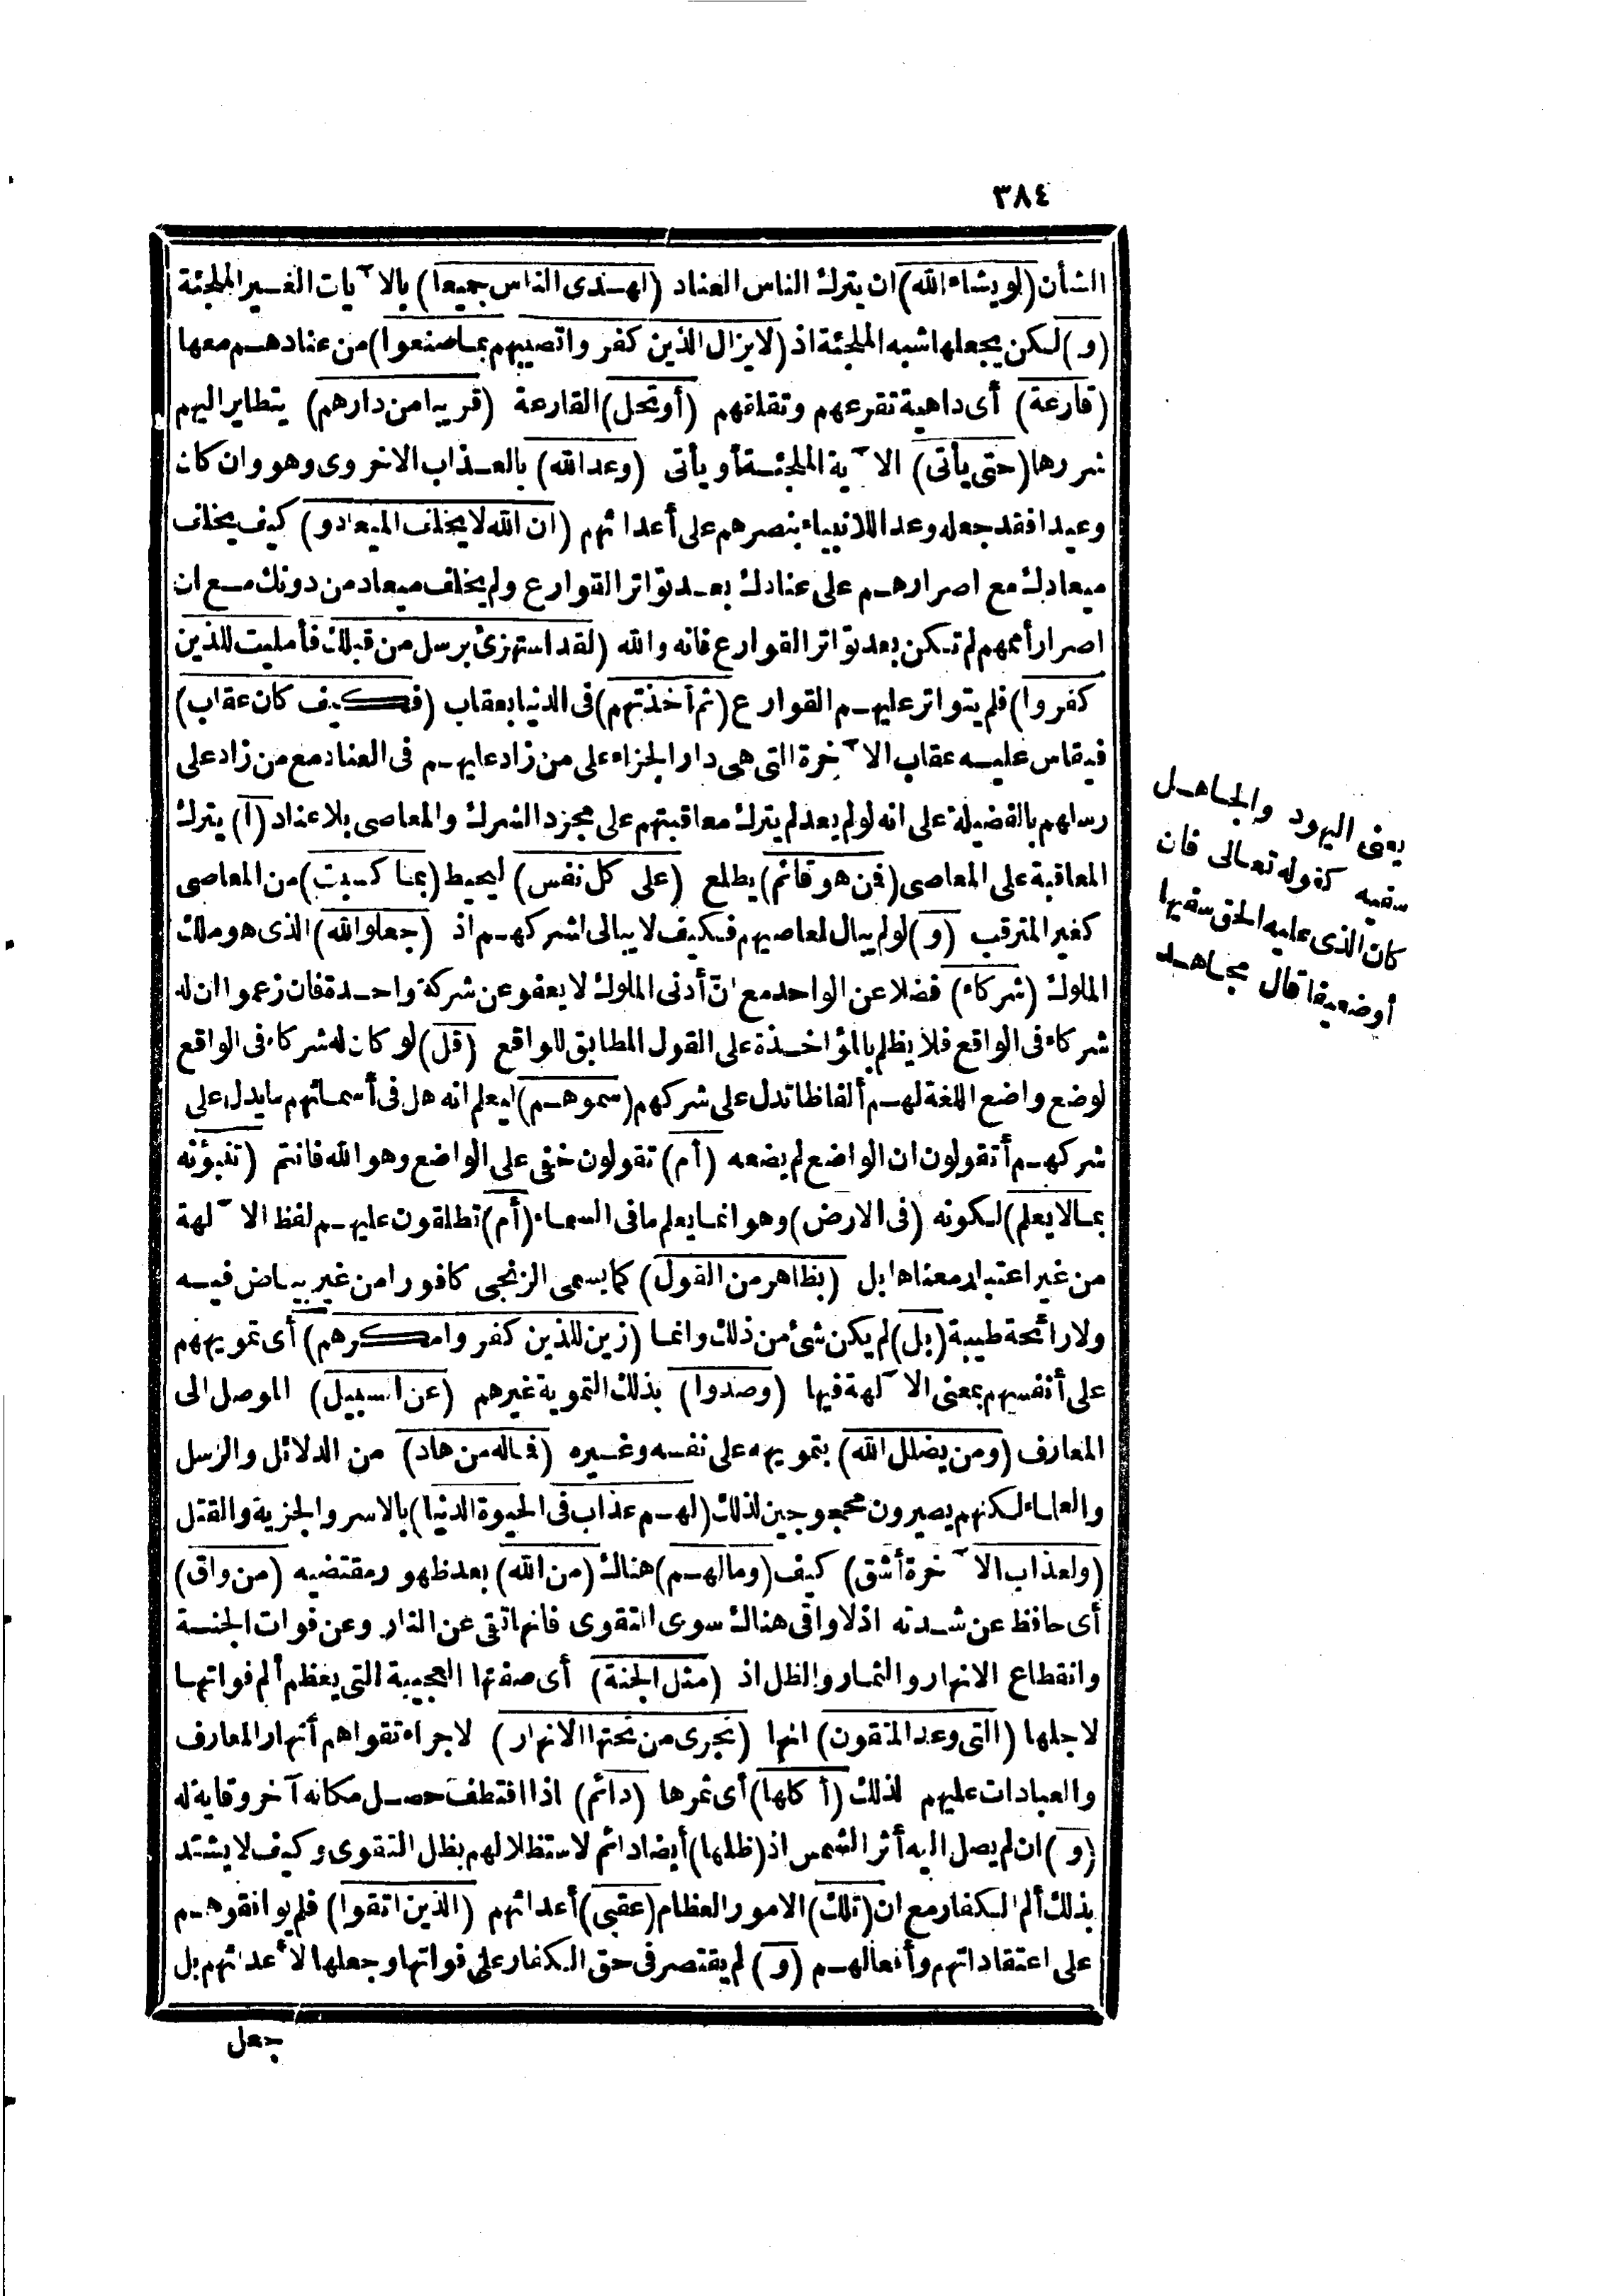 ٣٨٤
الشأن (لو يشاء الله) ان يترك الناس العناد (لهدى الناس جميعا) بالآيات الغير الملجئة
(و) لكن يجعلها شبه الملجئة اذ (لا يزال الذين كفروا تصيبهم بما صنعوا) من عنادهم معها
(قارعة) أى داهية تقرعهم وتقلقهم (أو تحل) القارعة (قريبا من دارهم) يتطاير اليهم
شررها (حتى يأتى) الآية الملجئة أو يأتى (وعد الله) بالعذاب الاخروى وهو وان كان
وعيدا فقد جعله وعدا للانبياء بنصرهم على أعدائهم (ان الله لا يخلف الميعاد و) كيف يخلف
ميعادك مع اصرارهم على عنادك بعد تواتر القوارع ولم يخلف ميعاد من دونك مع ان
اصرار أممهم لم تكن بعد تواتر القوارع فانه والله (لقد استهزئ برسل من قبلك فأمليت للذين
كفروا) فلم يتواتر عليهم القوارع (ثم أخذتهم) فى الدنيا بعقاب (فكيف كان عقاب)
فيقاس عليه عقاب الآخرة التى هى دار الجزاء على من زاد عليهم فى العناد مع من زاد على
رسلهم بالفضيلة على انه لو لم يعد لم يترك معاقبتهم على مجرد الشرك والمعاصى بلا عناد (ا) يترك
المعاقبة على المعاصى (فمن هو قائم) يطلع (على كل نفس) ليحيط (بما كسبت) من المعاصى
كغير المترقب (و) لو لم يبال لمعاصيهم فكيف لا يبالى لشركهم اذ (جعلوا لله) الذى هو ملك
الملوك (شركاء) فضلا عن الواحد مع انّ أدنى الملوك لا يعفو عن شركة واحدة فان زعموا ان له
شركاء فى الواقع فلا يظلم بالمؤاخذة على القول المطابق للواقع (قل) لو كان له شركاء فى الواقع
لوضع واضع اللغة لهم ألفاظا تدل على شركهم (سموهم) ليعلم انه هل فى أسمائهم ما يدل على
شركهم أتقولون ان الواضع لم يضعه (أم) تقولون خفى على الواضع وهو الله فانتم (تنبؤنه
بما لا يعلم) لكونه (فى الارض) وهو انما يعلم ما فى السماء (أم) تطلقون عليهم لفظ الآلهة
من غير اعتبار معناها بل (بظاهر من القول) كما يسمى الزنجى كافورا من غير بياض فيه
ولا رائحة طيبة (بل) لم يكن شئ من ذلك وانما (زين للذين كفروا مكرهم) أى تمويههم
على أنفسهم بمعنى الآلهة فيها (وصدوا) بذلك التمويه غيرهم (عن السبيل) الموصل الى
المعارف (ومن يضلل الله) بتمويهه على نفسه وغيره (فما له من هاد) من الدلائل والرسل
والعلماء لكنهم يصيرون محجوجين لذلك (لهم عذاب فى الحيوة الدنيا) بالاسر والجزية والقتل
(ولعذاب الآخرة أشق) كيف (وما لهم) هناك (من الله) بعد ظهور مقتضيه (من واق)
أى حافظ عن شدته اذ لا واقى هناك سوى التقوى فانها تقى عن النار وعن فوات الجنة
وانقطاع الانهار والثمار والظل اذ (مثل الجنة) أى صفتها العجيبة التى يعظم ألم فواتها
لاجلها (التى وعد المتقون) انها (تجرى من تحتها الانهار) لاجراء تقواهم أنهار المعارف
والعبادات عليهم لذلك (أكلها) أى ثمرها (دائم) اذا اقتطف حصل مكانه آخر وقاية له
(و) ان لم يصل اليه أثر الشمس اذ (ظلها) أيضا دائم لاستظلالهم بظل التقوى وكيف لا يشتد
بذلك ألم الكفار مع ان (تلك) الامور العظام (عقبى) أعدائهم (الذين اتقوا) فلم يوافقوهم
على اعتقاداتهم وأفعالهم (و) لم يقتصر فى حق الكفار على فواتها وجعلها لأعدائهم بل
جعل
يعنى اليهود والجاهل
سفيه كقوله تعالى فان
كان الذى عليه الحق سفيها
أو ضعيفا قال مجاهد